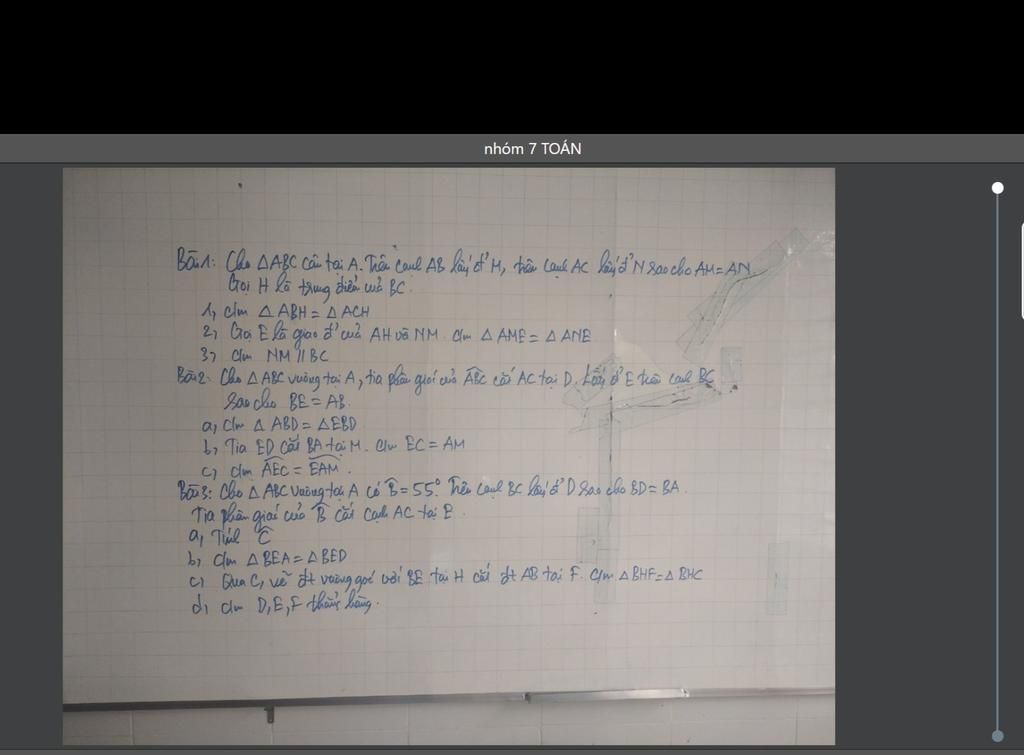 nhóm 7 TOÁN
Bài 1: Cho △ABC cân tại A. Trên cạnh AB lấy đ' M, trên cạnh AC lấy đ' N sao cho AM = AN.
Gọi H là trung điểm của BC.
1, c/m △ABH = △ACH
2, Gọi E là giao đ' của AH và NM. c/m △AME = △ANE
3, c/m NM // BC
Bài 2: Cho △ABC vuông tại A, tia phân giác của ABC cắt AC tại D. Lấy đ' E trên cạnh BC
sao cho BE = AB.
a, c/m △ABD = △EBD
b, Tia ED cắt BA tại M. c/m EC = AM
c, c/m AEC = EAM.
Bài 3: Cho △ABC vuông tại A có B̂ = 55°. Trên cạnh BC lấy đ' D sao cho BD = BA.
Tia phân giác của B̂ cắt cạnh AC tại E.
a, Tính Ĉ
b, c/m △BEA = △BED
c, Qua C, vẽ đt vuông góc với BE tại H cắt đt AB tại F. c/m △BHF = △BHC
d, c/m D, E, F thẳng hàng.